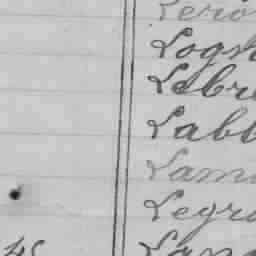 Lero
Logs
Lebr
Labb
Lam
Legr
45 Lang